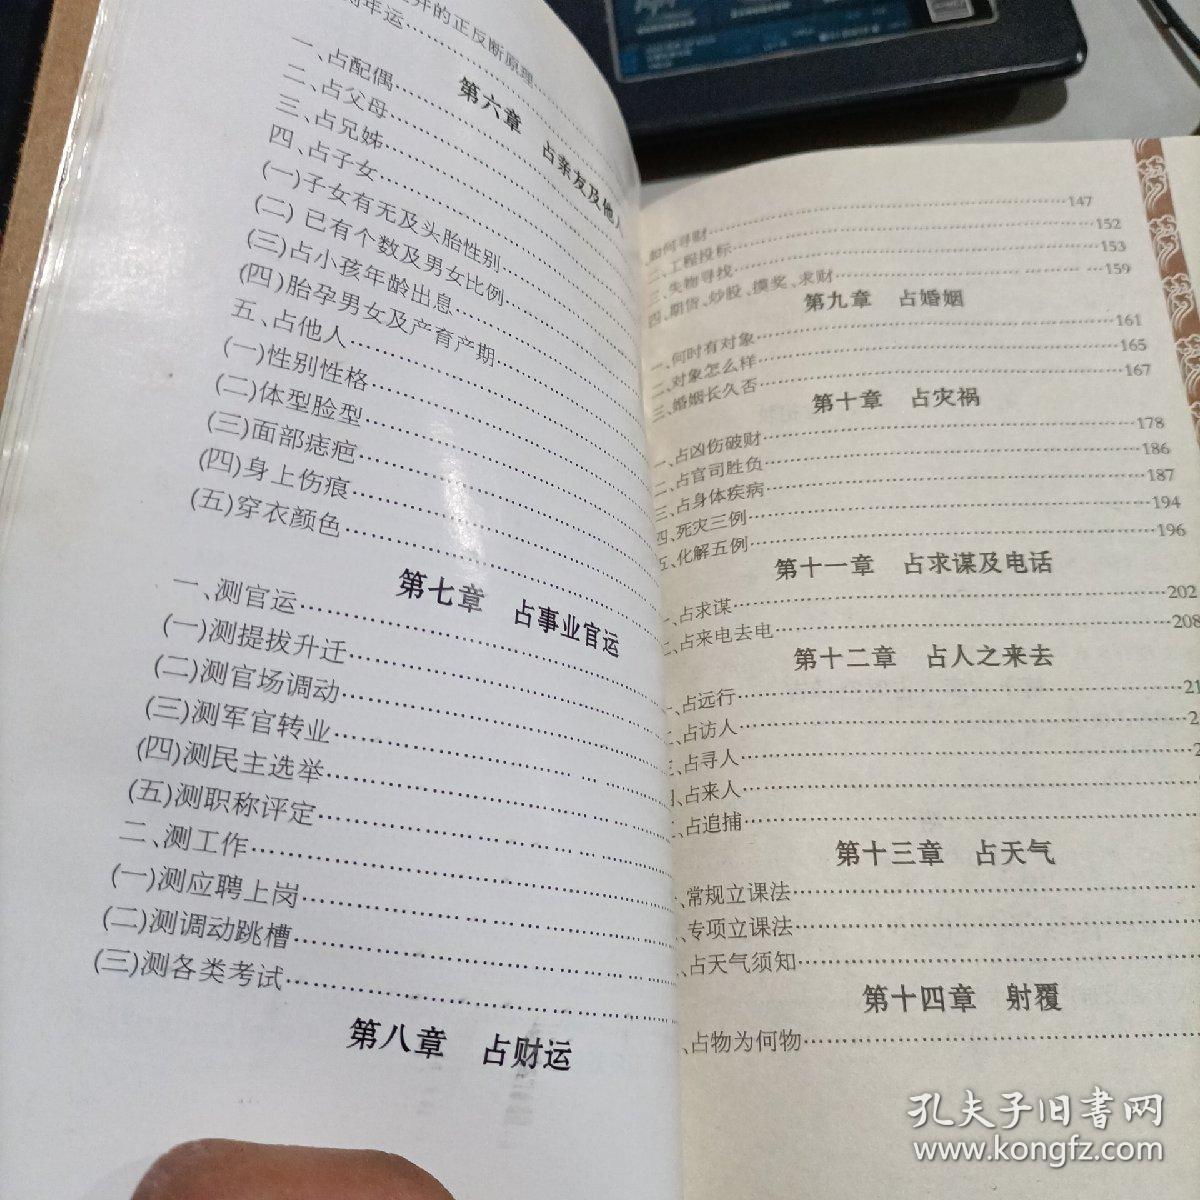 开的正反断原理
测年运
第六章 占亲友及他人
一、占配偶
二、占父母
三、占兄姊
四、占子女
(一)子女有无及头胎性别
(二)已有个数及男女比例
(三)占小孩年龄出息
(四)胎孕男女及产育产期
五、占他人
(一)性别性格
(二)体型脸型
(三)面部痣疤
(四)身上伤痕
(五)穿衣颜色
第七章 占事业官运
一、测官运
(一)测提拔升迁
(二)测官场调动
(三)测军官转业
(四)测民主选举
(五)测职称评定
二、测工作
(一)测应聘上岗
(二)测调动跳槽
(三)测各类考试
第八章 占财运
、如何寻财 147
二、工程投标 152
三、失物寻找 153
四、期货、炒股、摸奖、求财 159
第九章 占婚姻
一、何时有对象 161
二、对象怎么样 165
三、婚姻长久否 167
第十章 占灾祸
一、占凶伤破财 178
二、占官司胜负 186
三、占身体疾病 187
四、死灾三例 194
五、化解五例 196
第十一章 占求谋及电话
一、占求谋 202
二、占来电去电 208
第十二章 占人之来去
一、占远行 21
二、占访人 2
三、占寻人 2
四、占来人
、占追捕
第十三章 占天气
一、常规立课法
、专项立课法
、占天气须知
第十四章 射覆
、占物为何物
孔夫子旧书网
www.kongfz.com